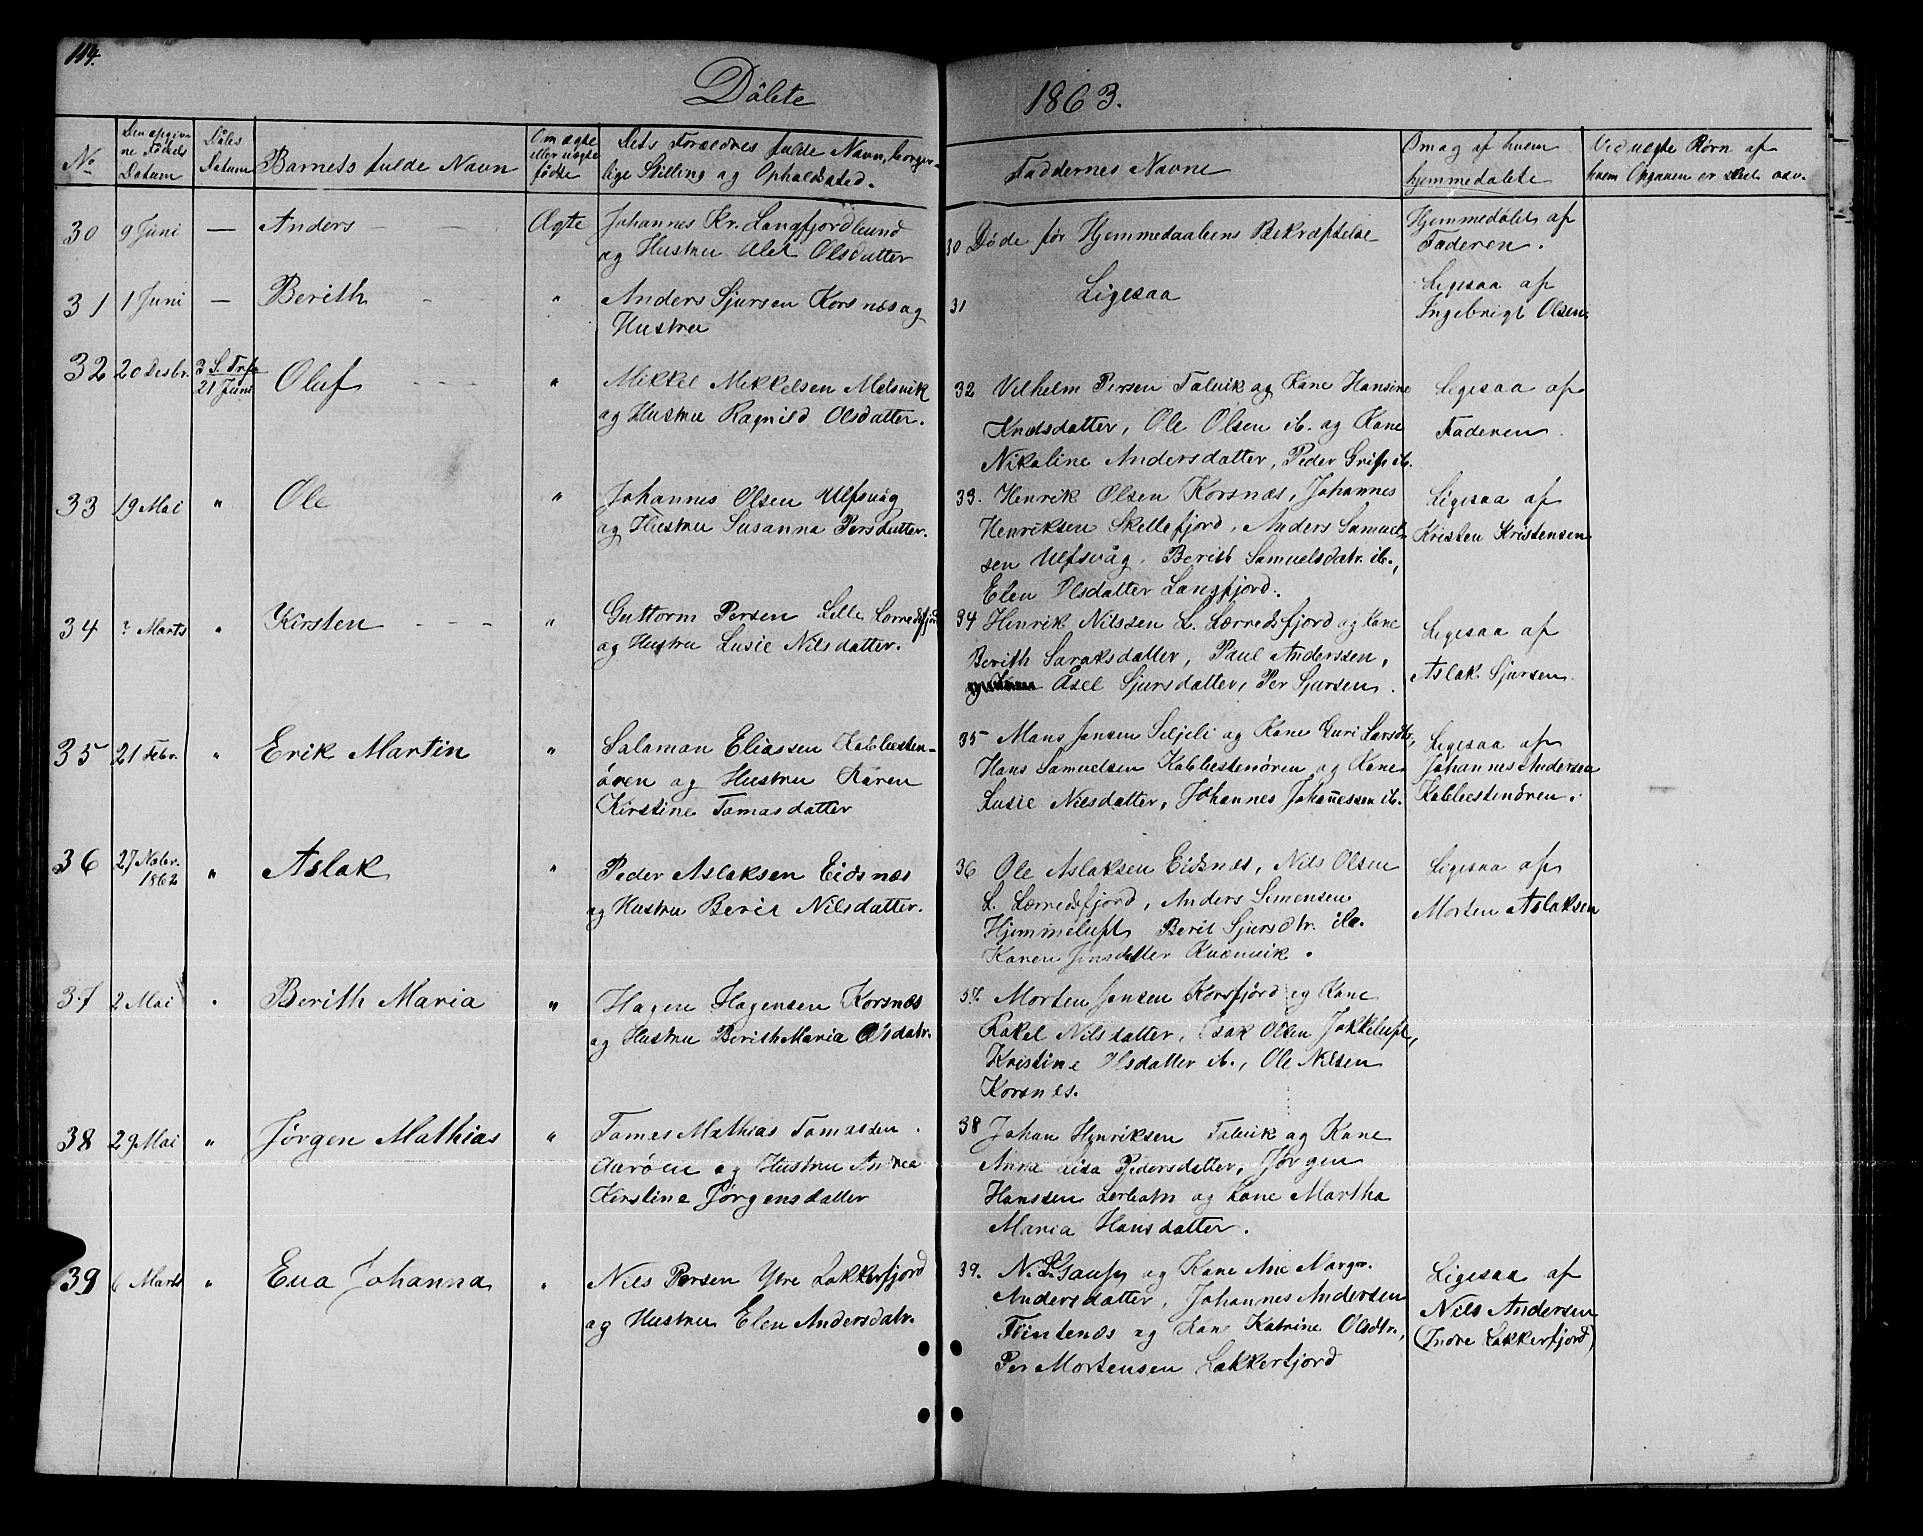 114.
Døbte 1863.
No
Den opgivne Fødsels Datum
Dåbs Datum
Barnets fulde Navn
Om ægte eller uægte fødte
Dets Forældres fulde Navn, borgerlige Stilling og Opholdssted.
Faddernes Navne
Om og af hvem hjemmedøbte
Ved uægte Børn af hvem Opgaven er
30 9 Juni — Anders Ægte Johannes Kr. Langfjordbund
og Hustru Alet Olsdatter
30 Døde før Hjemmedaabens Bekræftelse
Hjemmedøbt af
Faderen.
31 1 Juni — Berith " Anders Sjursen Korsnæs og
Hustru
31 Ligesaa
Ligesaa af
Ingebrigt Olsen.
32 20 Desbr. 3 S. Tref.
21 Juni Oluf " Mikkel Mikkelsen Melsvik
og Hustru Ragnild Olsdatter.
32 Vilhelm Persen Talvik og Kone Hansine
Knudsdatter, Ole Olsen ib. og Kone
Nikoline Andersdatter, Peder Grip ib.
Ligesaa af
Faderen.
33 19 Mai " Ole " Johannes Olsen Ulfsvåg
og Hustru Susanna Persdatter.
33. Henrik Olsen Korsnæs, Johannes
Henriksen Skillefjord, Anders Samuel-
sen Ulfsvåg, Berit Samuelsdatr. ib.,
Elen Olsdatter Langfjord.
Ligesaa af
Kristen Kristensen
34 ? Marts " Kirsten " Guttorm Persen Lille Lerredsfjord
og Hustru Lusie Nilsdatter.
34 Henrik Nilssen L. Lerredsfjord og Kone
Berith Saraksdatter, Paul Anderssen,
Åsel Sjursdatter, Per Sjursen.
Ligesaa af
Aslak Sjursen.
35 21 Febr. " Erik Martin " Salamon Eliassen Kobbesten-
øren og Hustru Karen
Kirstine Tomasdatter
35 Mans Jonsen Siljeli og Kone Guri Larsdtr,
Hans Samuelsen Kobbestenøren og Kone
Lusie Nilsdatter, Johannes Johanessen ib.
Ligesaa af
Johannes Andersen
Kobbestenøren.
36 27 Novbr.
1862 " Aslak " Peder Aslaksen Eidsnæs
og Hustru Berit Nilsdatter.
36 Ole Aslaksen Eidsnæs, Nils Olsen
L. Lerredsfjord, Anders Simonsen
Hjemmeluft, Berit Sjursdtr. ib.
Karen Jonsdatter Kvænvik.
Ligesaa af
Morten Aslaksen
37 2 Mai " Berith Maria " Hagen Hagensen Korsnæs
og Hustru Berith Maria Olsdatr.
37. Morten Jonsen Korsfjord og Kone
Rakel Nilsdatter, Isak Olsen Jokkeluft,
Kristine Olsdatter ib., Ole Nilsen
Korsnæs.
38 29 Mai " Jørgen Mathias " Tomas Mathias Tomassen
Aarøen og Hustru Andrea
Kirstine Jørgensdatter
38 Johan Henriksen Talvik og Kone
Anne Lisa Pedersdatter, Jørgen
Hanssen Lerbotn og Kone Martha
Maria Hansdatter.
39 6 Marts " Eva Johanna " Nils Persen Ytre Lakkerfjord
og Hustru Elen Andersdatr.
39. N. L. Gaup og Kone Ane Margr.
Andersdatter, Johannes Andersen
Flintenæs og Kone Katrine Olsdtr.,
Per Mortensen Lakkerfjord
Ligesaa af
Nils Andersen
(Indre Lakkerfjord)